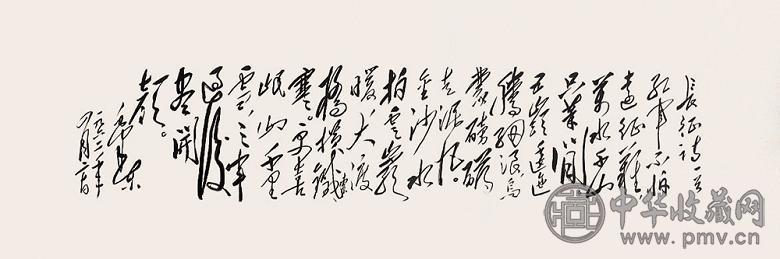 長征诗一首
红軍不怕
遠征難
萬水千山
只等閒
五嶺逶迤
騰細浪烏
蒙磅礴
走泥丸。
金沙水
拍雲崖
暖大渡
橋横鐵索
寒。更喜
岷山千里
雪,三軍
過後
盡開
顏。
毛澤東
一九六二年
四月二十日
中华收藏网
www.pmv.cn